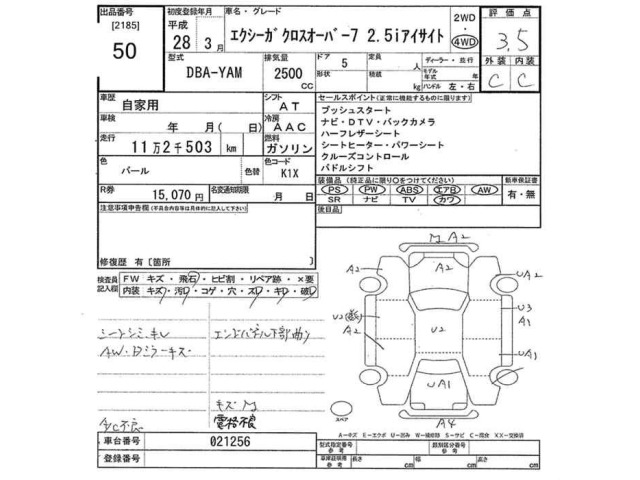 出品番号
[2185]
50
初度登録年月
平成
28 3月
車名・グレード
エクシーガ クロスオーバー7 2.5iアイサイト
2WD
・
4WD
評価点
3.5
型式
DBA-YAM
排気量
2500
CC
ドア 5
形状
定員 人
積載 kg
ディーラー・並行
モデル年式 年
ハンドル 左・右
外装 内装
C C
車歴
自家用
シフト
AT
車検
年 月( 日)
冷房
AAC
走行
11万2千503 km
燃料
ガソリン
色
パール
色替
色コード
K1X
R券
15,070円
名変通知期限
月 日
セールスポイント(正常に機能するものに限ります)
プッシュスタート
ナビ・DTV・バックカメラ
ハーフレザーシート
シートヒーター・パワーシート
クルーズコントロール
パドルシフト
装備品(純正品に限り○をつけてください)
PS PW ABS エアB AW
SR ナビ TV カワ
新車保証書
有・無
後日品
注意事項申告欄(※具合内容等は具体的に記入して下さい)
修復歴 有[箇所 ]
検査員記入欄
FW キズ・飛石・ヒビ割・リペア跡・×要
内装 キズ・汚レ・コゲ・穴・スレ・キレ・破レ
シートシミ・キレ
AW・Dミラーキズ
エンドパネル下部曲り
キズ M
電格不良
M A2
A2
A2
UA2
U2
A2
U2
U3
A1
UA1
UA1
A4
スペア
A-キズ E-エクボ U-凹み W-補修跡 S-サビ C-腐食 XX-交換済
車台番号
021256
登録番号
型式指定番号
参考
類別区分番号
参考
車庫証明用
参考
長さ cm
幅 cm
高さ cm